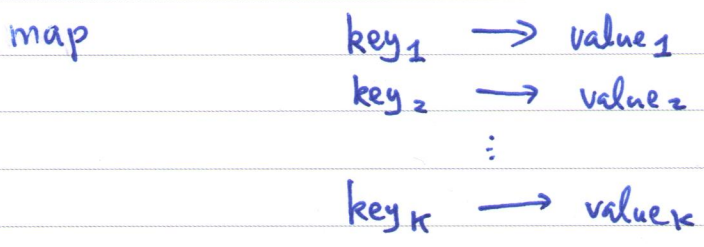 map key₁ → value₁
key₂ → value₂
⋮
key_K → value_K